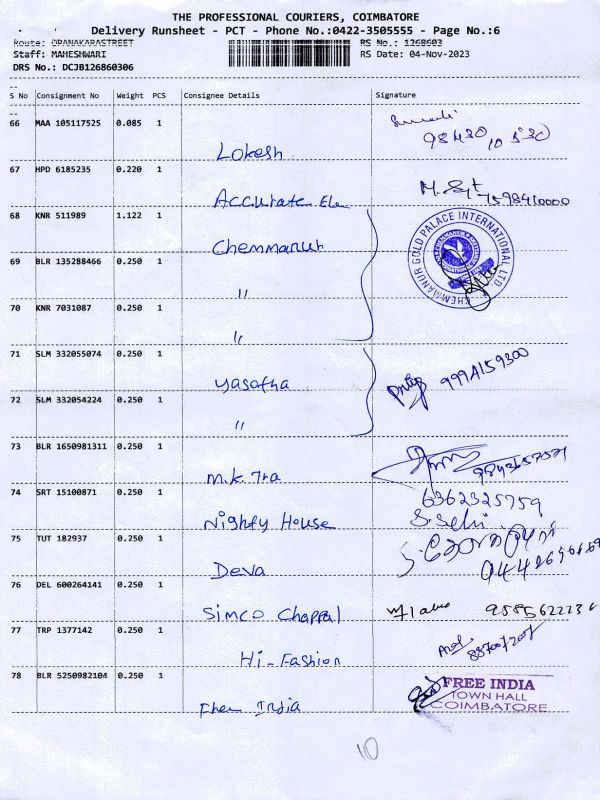 THE PROFESSIONAL COURIERS, COIMBATORE
Delivery Runsheet - PCT - Phone No.:0422-3505555 - Page No.:6
Route: OPANAKARASTREET RS No.: 1268603
Staff: MAHESHWARI RS Date: 04-Nov-2023
DRS No.: DCJB126860306
S No Consignment No Weight PCS Consignee Details Signature
66 MAA 105117525 0.085 1
Lokesh
67 HPD 6185235 0.220 1
Accurate Ele
68 KNR 511989 1.122 1
Chemmanur
CHEMMANUR GOLD PALACE INTERNATIONAL LTD.
69 BLR 135288466 0.250 1
"
70 KNR 7031087 0.250 1
"
71 SLM 332055074 0.250 1
Yasotha
72 SLM 332054224 0.250 1
"
73 BLR 1650981311 0.250 1
M.K. Tra
74 SRT 15100871 0.250 1
6362325759
Nighty House S. Selvi
75 TUT 182937 0.250 1
Deva
76 DEL 600264141 0.250 1
Simco Chappal
77 TRP 1377142 0.250 1
Hi-Fashion
78 BLR 5250982104 0.250 1
Free India
FREE INDIA
TOWN HALL
COIMBATORE
10